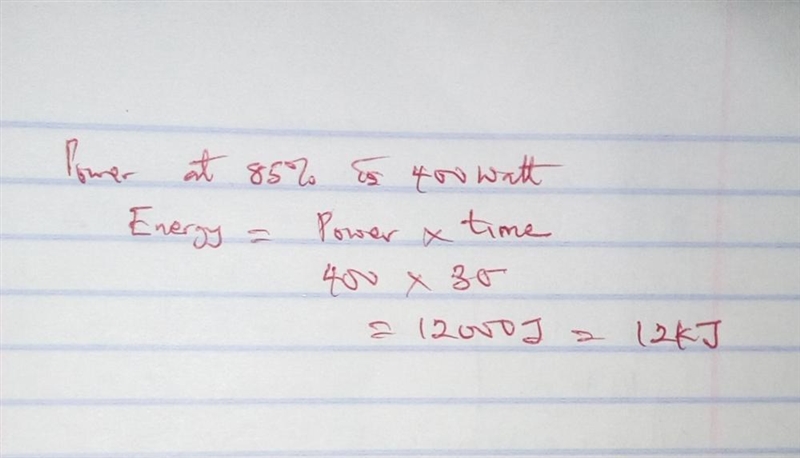 Power at 85% is 400 watt
Energy = Power × time
400 × 30
= 12000J = 12KJ